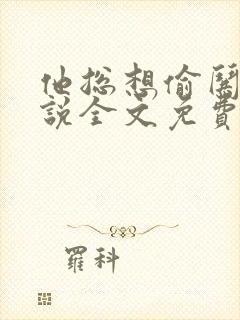 他总想偷闻
说全文免费
羅科